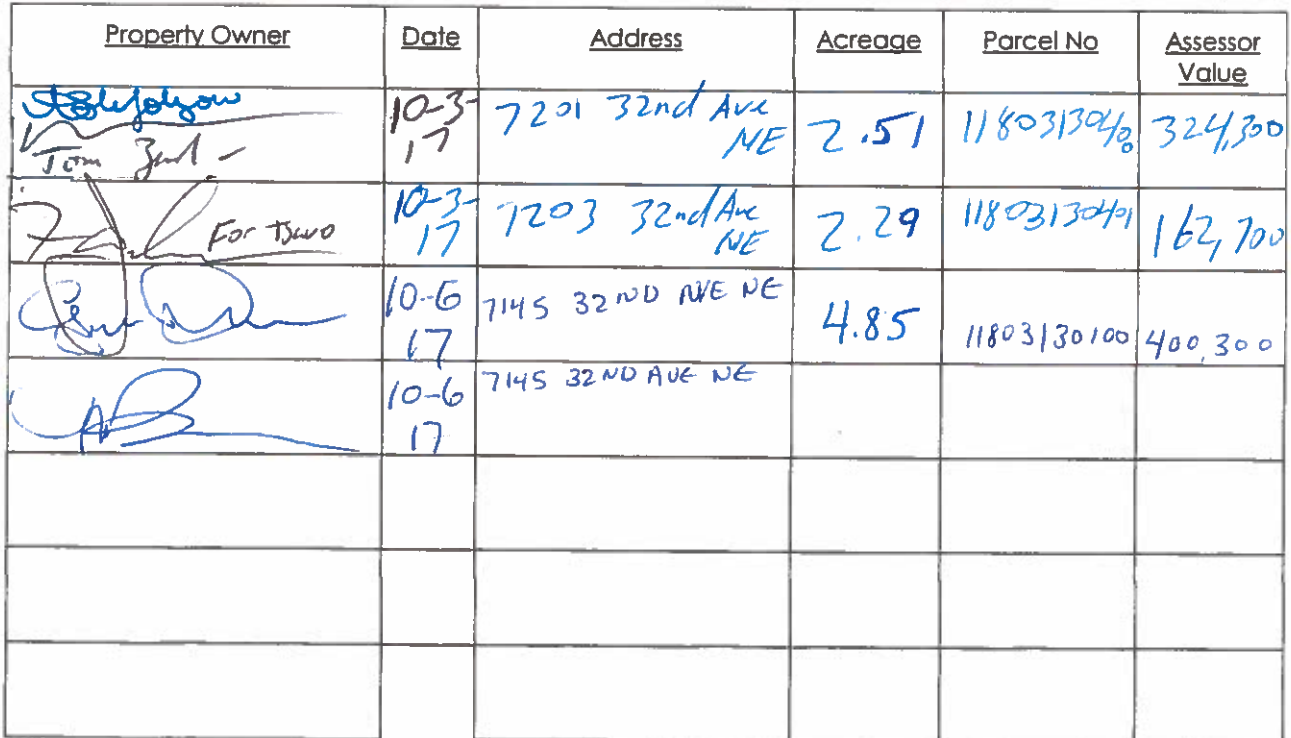 Property Owner Date Address Acreage Parcel No Assessor Value
10-3-17 7201 32nd Ave NE 2.51 11803130400 324,300
Tom
For 10-3-17 7203 32nd Ave NE 2.29 11803130401 162,700
10-6 17 7145 32ND AVE NE 4.85 11803130100 400,300
10-6 17 7145 32ND AVE NE